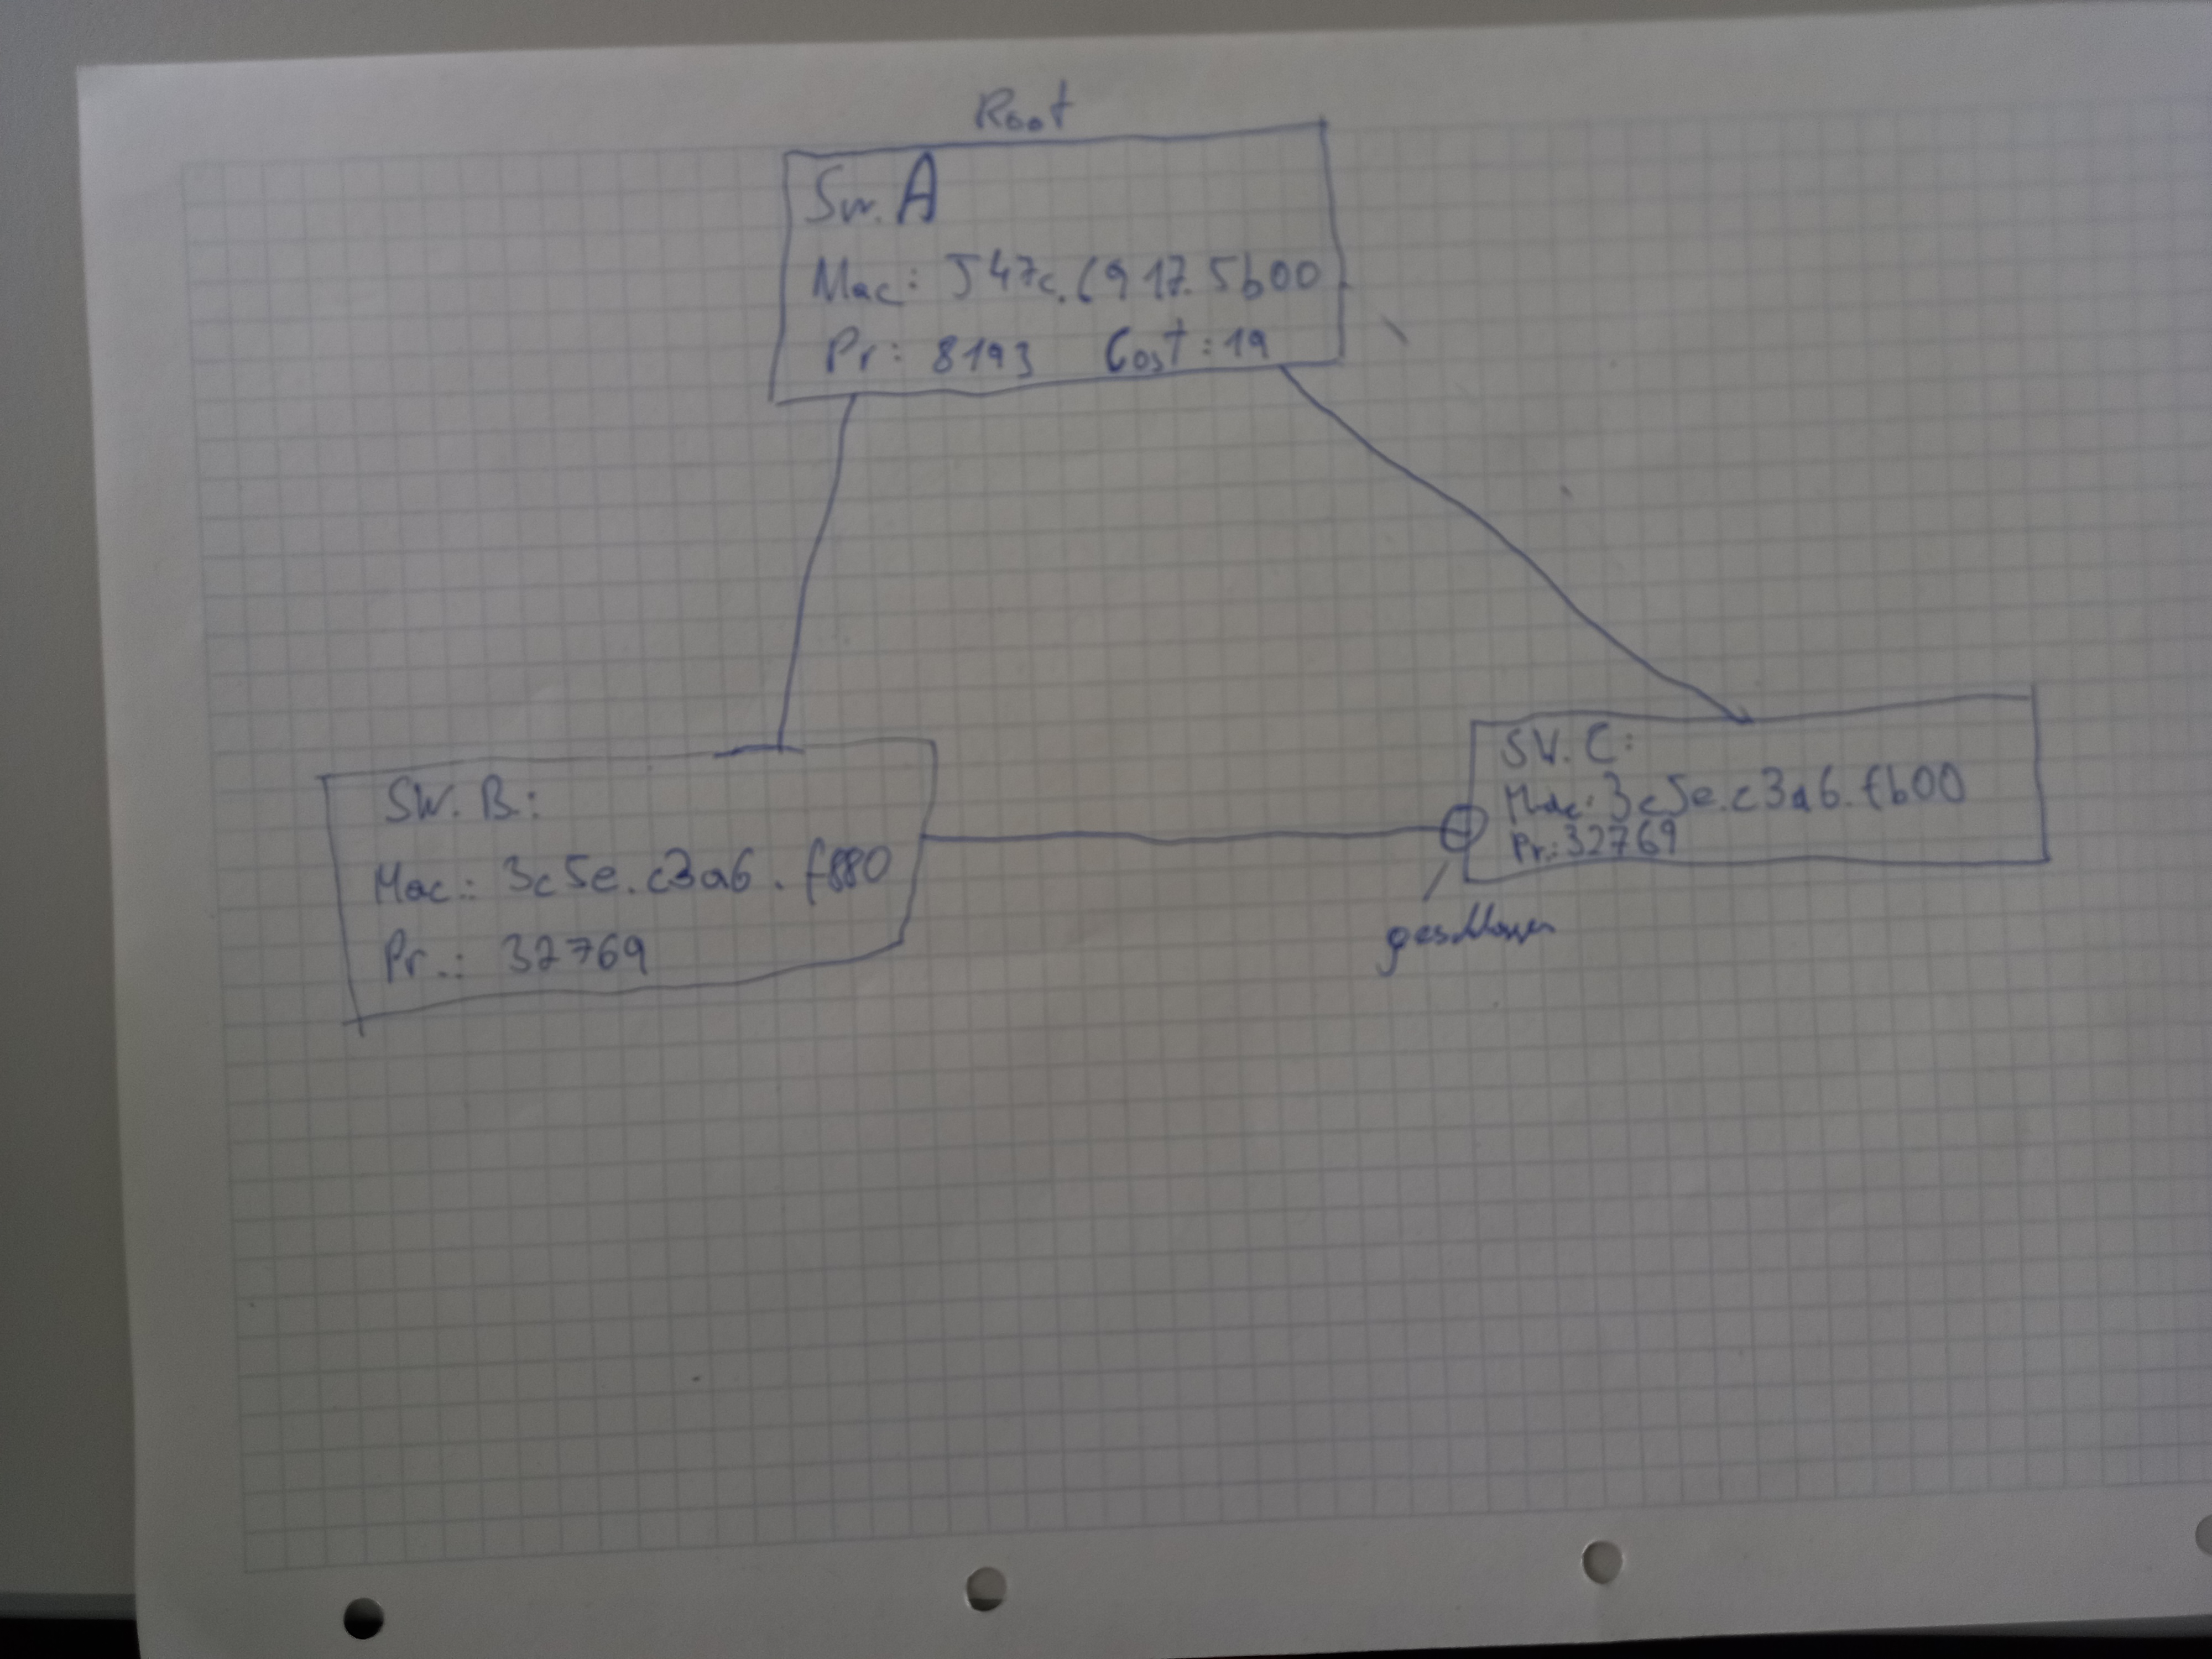 Root
Sw. A
Mac: 547c.6917.5b00
Pr: 8193 Cost: 19
SW. B.:
Mac.: 3c5e.c3a6.f880
Pr.: 32769
SW. C:
Mac: 3c5e.c3a6.fb00
Pr.: 32769
geschlossen